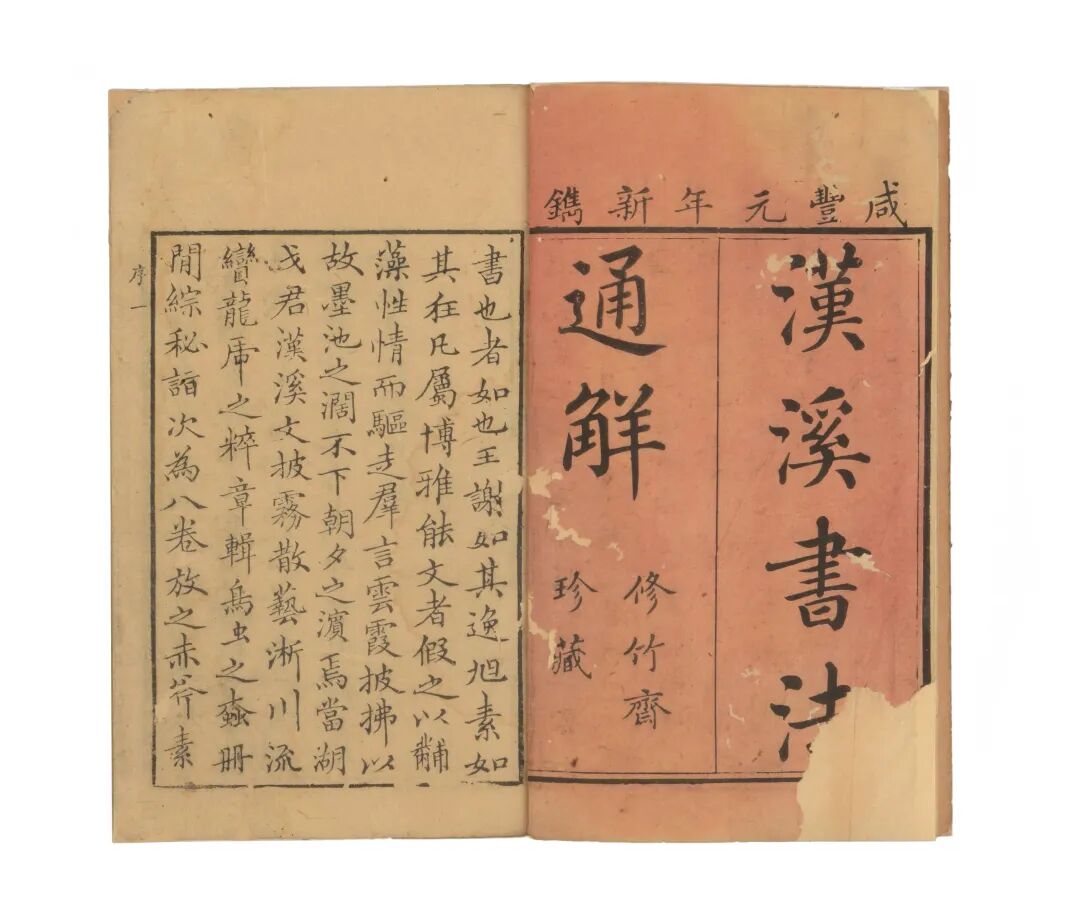 咸豐元年新鐫
漢溪書法
通解
修竹齋
珍藏
書也者如也王謝如其逸旭素如
其狂凡屬博雅能文者假之以黼
藻性情而驅走羣言雲霞披拂以
故墨池之濶不下朝夕之濵焉當湖
戈君漢溪文披霧散藝淅川流
龍乕之粹章輯鳥虫之蟊冊
閒綜秘詣次為八卷放之赤斧素
序一